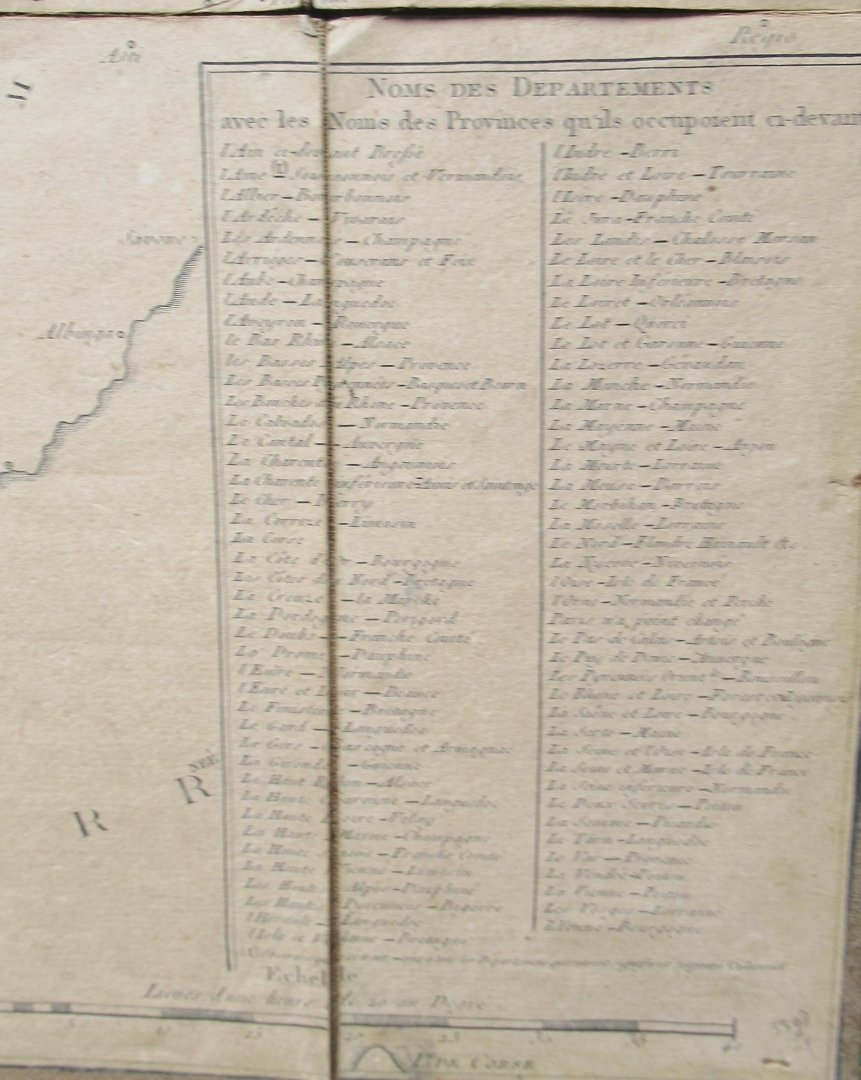 Asti
Regio
NOMS DES DEPARTEMENTS
avec les Noms des Provinces qu'ils occupoient ci-devant
Savone
Albenga
l'Ain ci-devant Bresse
l'Aine (1) Soissonnois et Vermandois
l'Allier – Bourbonnois
l'Ardêche – Vivarais
Les Ardennes – Champagne
l'Arriege – Couserans et Foix
l'Aube – Champagne
l'Aude – Languedoc
l'Aveyron – Rouergue
le Bas Rhin – Alsace
les Basses Alpes – Provence
Les Basses Pyrennées – Basques et Bearn
Les Bouches du Rhone – Provence
Le Calvados – Normandie
Le Cantal – Auvergne
La Charente – Angoumois
La Charente inferieure – Aunis et Saintonge
Le Cher – Berry
La Correze – Limosin
La Corse
La Côte d'Or – Bourgogne
Les Côtes du Nord – Bretagne
La Creuze – la Marche
La Dordogne – Perigord
Le Doubs – Franche Comté
La Drome – Dauphiné
l'Eure – Normandie
l'Eure et Loir – Beauce
Le Finistere – Bretagne
Le Gard – Languedoc
Le Gers – Gascogne et Armagnac
La Gironde – Guienne
Le Haut Rhin – Alsace
La Haute Garonne – Languedoc
La Haute Loire – Velay
La Haute Marne – Champagne
La Haute Saone – Franche Comté
La Haute Vienne – Limosin
Les Hautes Alpes – Dauphiné
Les Hautes Pyrennées – Bigorre
l'Herault – Languedoc
l'Isle et Vilaine – Bretagne
l'Indre – Berri
l'Indre et Loire – Tourraine
l'Isere – Dauphiné
Le Jura – Franche Comté
Les Landes – Chalosse Marsan
Le Loire et le Cher – Blaisois
La Loire Inferieure – Bretagne
Le Loiret – Orléannois
Le Lot – Querci
Le Lot et Garonne – Guienne
La Lozerre – Gévaudan
La Manche – Normandie
La Marne – Champagne
La Mayenne – Maine
Le Mayne et Loire – Anjou
La Meurte – Lorraine
La Meuse – Barrois
Le Morbihan – Bretagne
La Moselle – Lorraine
Le Nord – Flandre Hainault &c.
La Nyevre – Nivernois
l'Oise – Isle de France
l'Orne – Normandie et Perche
Paris n'a point changé
Le Pas de Calais – Artois et Boulogne
Le Puy de Dome – Auvergne
Les Pyrennées Orient.les – Roussillon
Le Rhone et Loire – Forest et Lyonnois
La Saône et Loire – Bourgogne
La Sarte – Maine
La Seine et l'Oise – Isle de France
La Seine et Marne – Isle de France
La Seine inferieure – Normandie
Le Deux Sevres – Poitou
La Somme – Picardie
Le Tarn – Languedoc
Le Var – Provence
La Vendée – Poitou
La Vienne – Poitou
Les Vosges – Lorraine
L'Yonne – Bourgogne
R R NEE
Echelle
Lieues d'une heure de 20 au Degré
5 10 15 20 25
I. DE CORSE